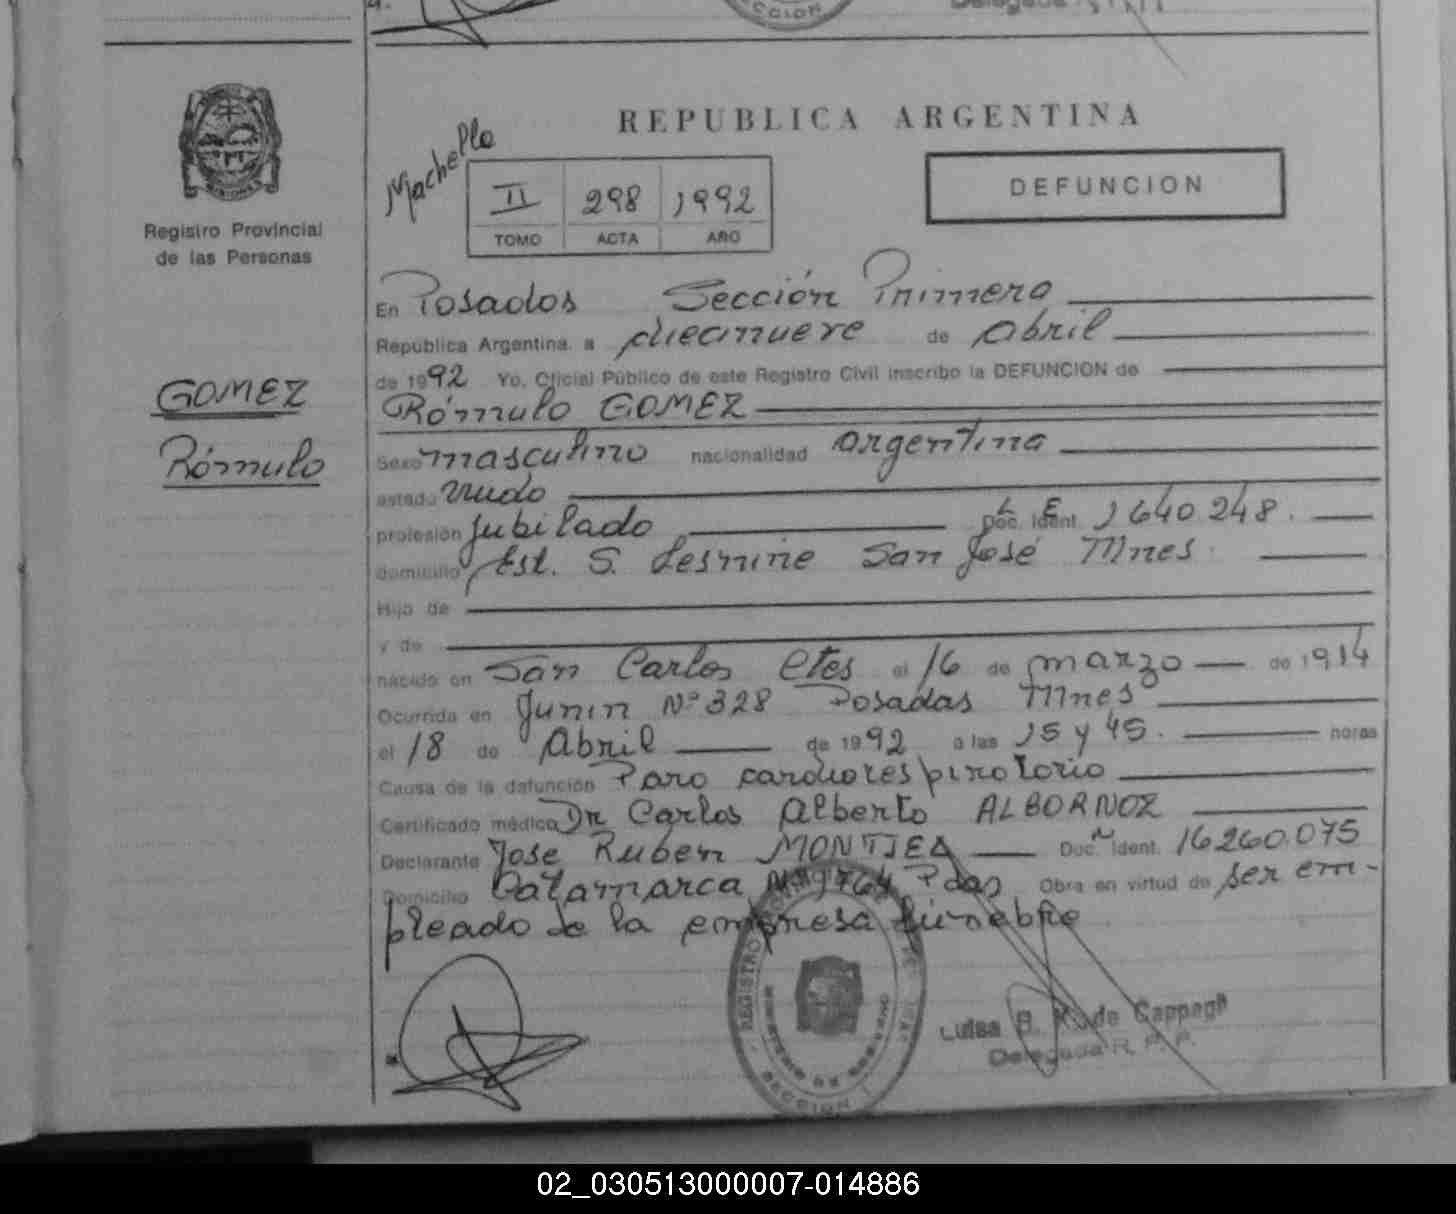 SECCION
Delegada
REPUBLICA ARGENTINA
Machello
II 298 1992
TOMO ACTA AÑO
DEFUNCION
MISIONES
Registro Provincial
de las Personas
GOMEZ
Rómulo
En Posadas Sección Primera
Republica Argentina. a diecinueve de abril
de 1992 Yo, Oficial Público de este Registro Civil inscribo la DEFUNCION de
Rómulo GOMEZ
Sexo masculino nacionalidad argentina
estado viudo
profesión Jubilado Doc. Ident. L E 1640.248.
domicilio Est. S. San José Mnes.
Hijo de
y de
nacido en San Carlos Ctes el 16 de marzo de 1914
Ocurrida en Junin Nº 328 Posadas Mnes
el 18 de Abril de 1992 a las 15 y 45. horas
Causa de la defunción Paro cardiorespiratorio
Certificado médico Dr Carlos Alberto ALBORNOZ
Declarante Jose Ruben MONTIEL Doc. Ident. 16260.075
Domicilio Catamarca Pdas Obra en virtud de ser em-
pleado de la empresa fúnebre
REGISTRO
MINISTERIO DE GOBIERNO
SECCION 1
Luisa B. K. de Cappagli
Delegada R. P. P.
02_030513000007-014886